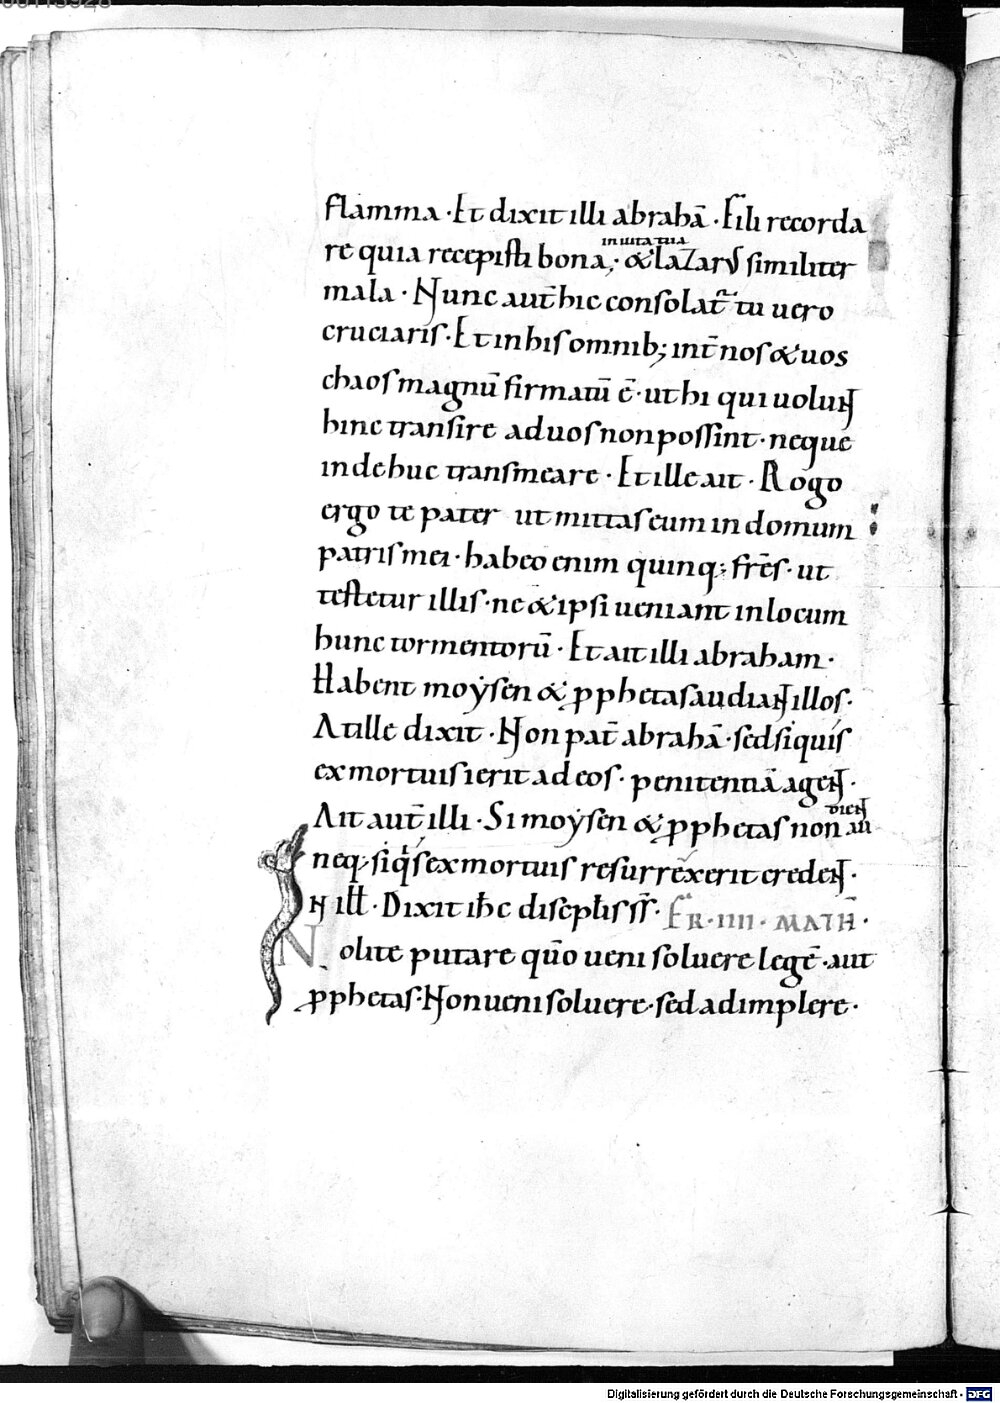 flamma · Et dixit illi abrahā · Fili recorda
re quia recepisti bona; & lazarus similiter
in uita tua
mala · Nunc aut̄ hic consolat̄ tu uero
cruciaris · Et in his omnib; int̄ nos & uos
chaos magnū firmatū ē · ut hi qui uolunt
hinc transire ad uos non possint · neque
inde huc transmeare · Et ille ait · Rogo
ergo te pater ut mittas eum in domum
patris mei · habeo enim quinq; fr̄es · ut
testetur illis · ne & ipsi ueniant in locum
hunc tormentorū · Et ait illi abraham ·
Habent moẏsen & ꝓphetas audiant illos ·
At ille dixit · Non pat̄ abrahā · sed si quis
ex mortuis ierit ad eos · penitentiā agent ·
Ait aut̄ illi · Si moẏsen & ꝓphetas non au
dient
neq; si q̇s ex mortuis resurrexerit credent ·
IN iłł · Dixit ih̄c discipłis s̄s · FR · IIII · MATH̄ ·
Nolite putare qūo ueni soluere legē · aut
ꝓphetas · Non ueni soluere · sed adimplere ·
Digitalisierung gefördert durch die Deutsche Forschungsgemeinschaft - DFG